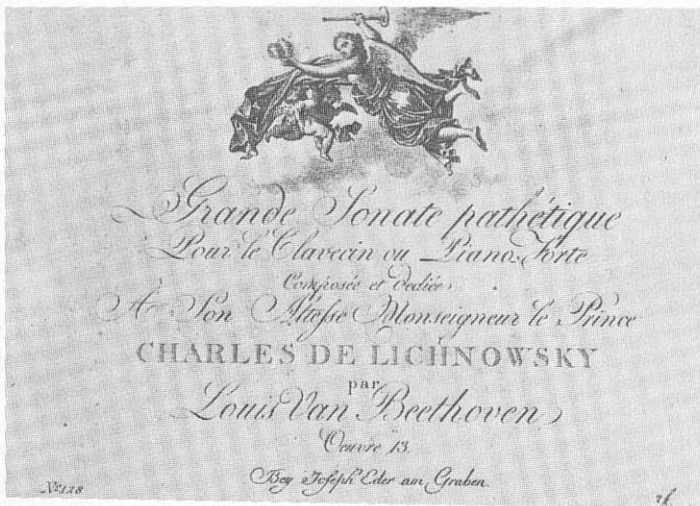 Grande Sonate pathétique
Pour le Clavecin ou Piano-Forte
Composée et dediée
A Son Altesse Monseigneur le Prince
CHARLES DE LICHNOWSKY
par
Louis Van Beethoven
Oeuvre 13.
Bey Joseph Eder am Graben.
No. 128